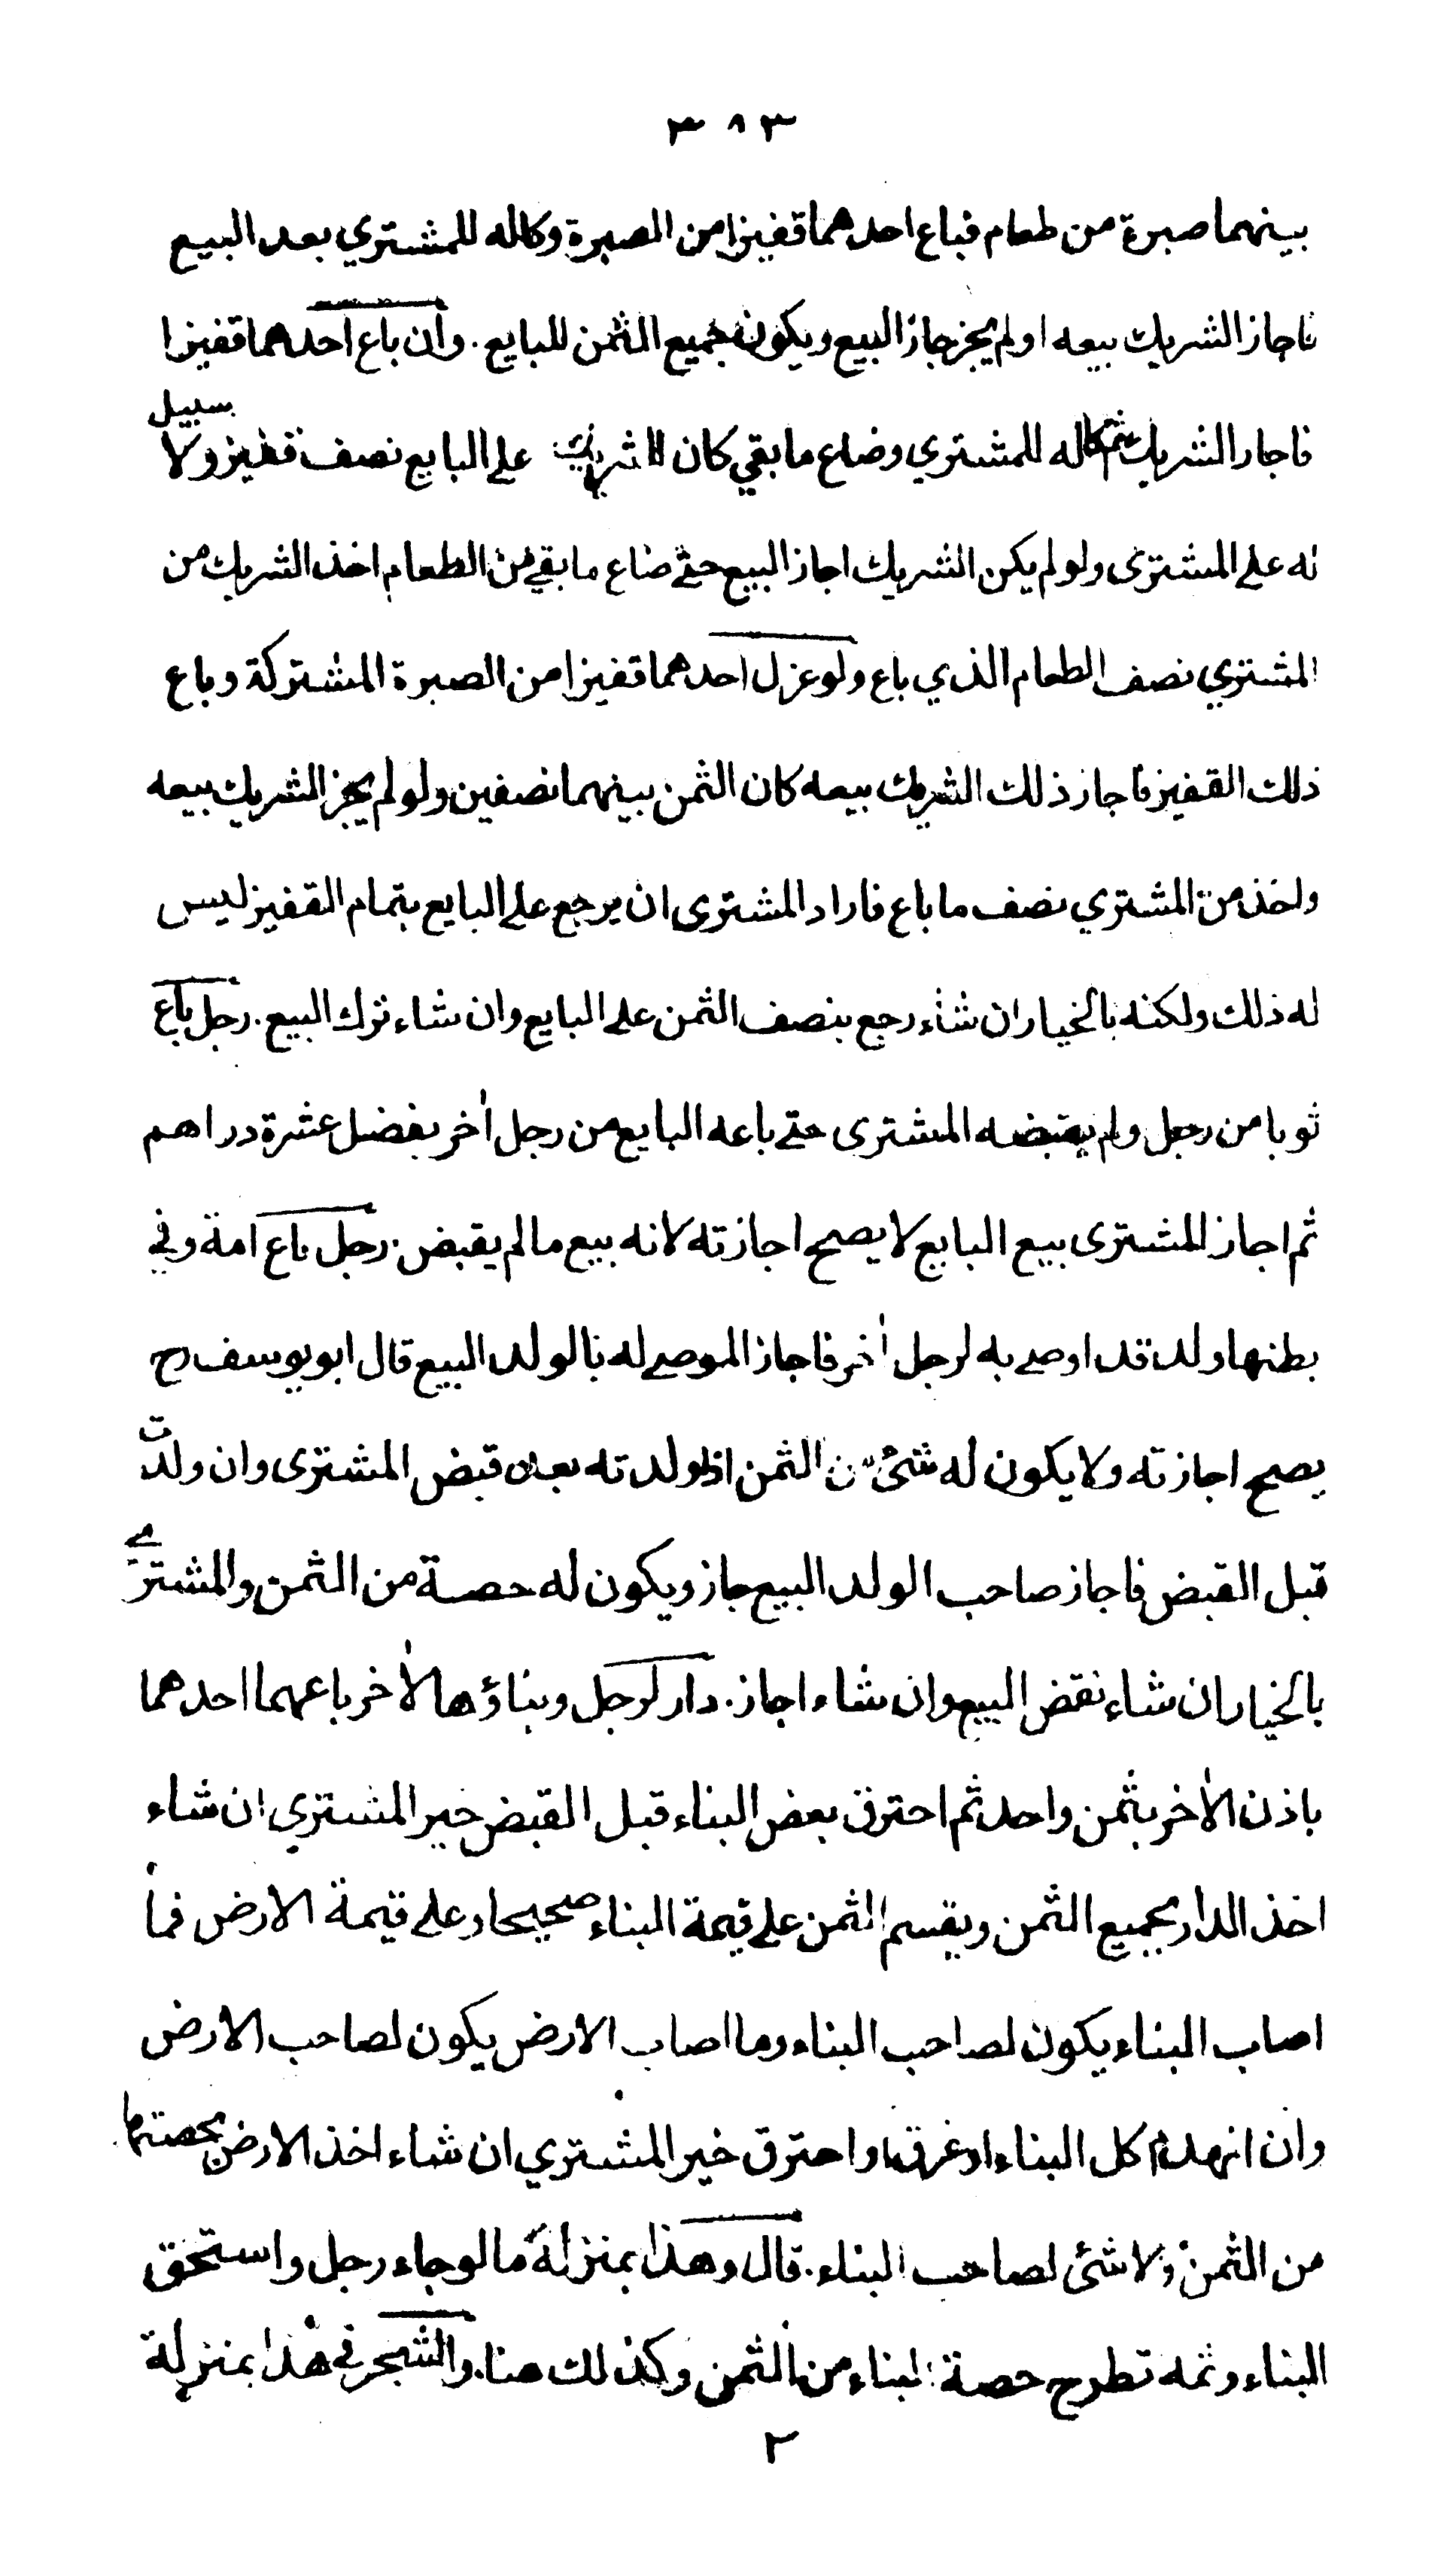 ٣٨٣
بينهما صبرة من طعام فباع احدهما قفيزا من الصبرة وكاله للمشتري بعد البيع
فاجاز الشريك بيعه اولم يجز جاز البيع ويكون جميع الثمن للبايع . وان باع احدهما قفيزا
فاجاز الشريك ثم كاله للمشتري وضاع ما بقي كان للشريك على البايع نصف قفيز ولا سبيل
له على المشترى ولو لم يكن الشريك اجاز البيع حتى ضاع ما بقي من الطعام اخذ الشريك من
المشتري نصف الطعام الذي باع ولو عزل احدهما قفيزا من الصبرة المشتركة وباع
ذلك القفيز فاجاز ذلك الشريك بيعه كان الثمن بينهما نصفين ولو لم يجز الشريك بيعه
واخذ من المشتري نصف ما باع فاراد المشترى ان يرجع على البايع بتمام القفيز ليس
له ذلك ولكنه بالخيار ان شاء رجع بنصف الثمن على البايع وان شاء ترك البيع . رجل باع
ثوبا من رجل ولم يقبضه المشترى حتى باعه البايع من رجل اخر بفضل عشرة دراهم
ثم اجاز المشترى بيع البايع لا يصح اجازته لانه بيع ما لم يقبض . رجل باع امة وفي
بطنها ولد قد اوصى به لرجل اخر فاجاز الموصى له بالولد البيع قال ابو يوسف رح
يصح اجازته ولا يكون له شئ من الثمن اذا ولدته بعد قبض المشترى وان ولدت
قبل القبض فاجاز صاحب الولد البيع جاز ويكون له حصة من الثمن والمشتري
بالخيار ان شاء نقض البيع وان شاء اجاز . دار لرجل وبناؤها لاخر باعهما احدهما
باذن الاخر بثمن واحد ثم احترق بعض البناء قبل القبض خير المشتري ان شاء
اخذ الدار بجميع الثمن ويقسم الثمن على قيمة البناء صحيحا وعلى قيمة الارض فما
اصاب البناء يكون لصاحب البناء وما اصاب الارض يكون لصاحب الارض
وان انهدم كل البناء او غرق او احترق خير المشتري ان شاء اخذ الارض بحصتها
من الثمن ولا شئ لصاحب البناء . قال وهذا بمنزلة ما لو جاء رجل واستحق
البناء وثمه تطرح حصة البناء من الثمن وكذلك هنا . والشجر في هذا بمنزلة
٢